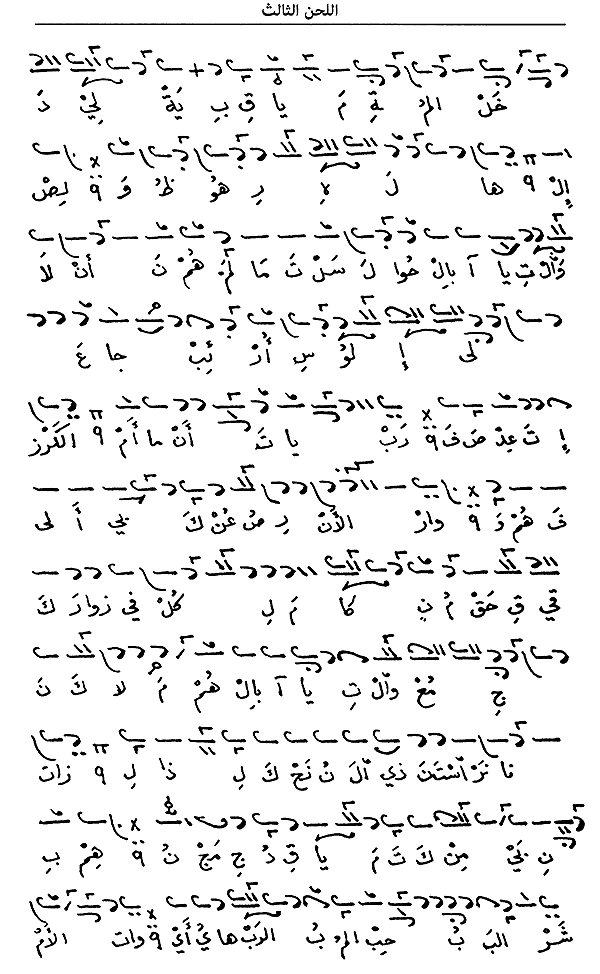 اللحن الثالث
خَلْ المْ ةِ مَ يا قِ بِ يَةْ لِيْ دَ
إِلْ ٩ ها لَ رِ هُو ظُ وَ ٩ لِصْ
وَالْ تِ يا آ بالْ حُوا لَ سَلْ تَ مَا لَمْ هُمْ نَ أَنْ لاَ
إِ لُو سِ أُرْ جا عَ
إِ تَ عِدْ صَ فَ ٩ رَبْ يا تَ أَنْ ما أَمْ ٩ الكَرْز
فَ هُمْ دَ ٩ وارْ الأَنْ رِ صُ عُنْ كَ بي أَ لى
قي قِ حَقْ مُ نِ كا مَ لِ كُلْ في زوارَ كَ
جِ مُعْ والْ تِ يا آ بالْ هُمْ مَ لا كَ نَ
نا نَرْ اسْتَنَ ذي الَ نْ نَحْ كَ لِ ذا لِ ٩ زات
نِ مِنْ كَ تَ مَ يا قِ دُ جِ مَجْ نُ ٩ هِمْ بِ
شَرْ البَ بُ حِبْ المُ بُ الرَبْ هاي أَيْ ٩ وات الأَمْ